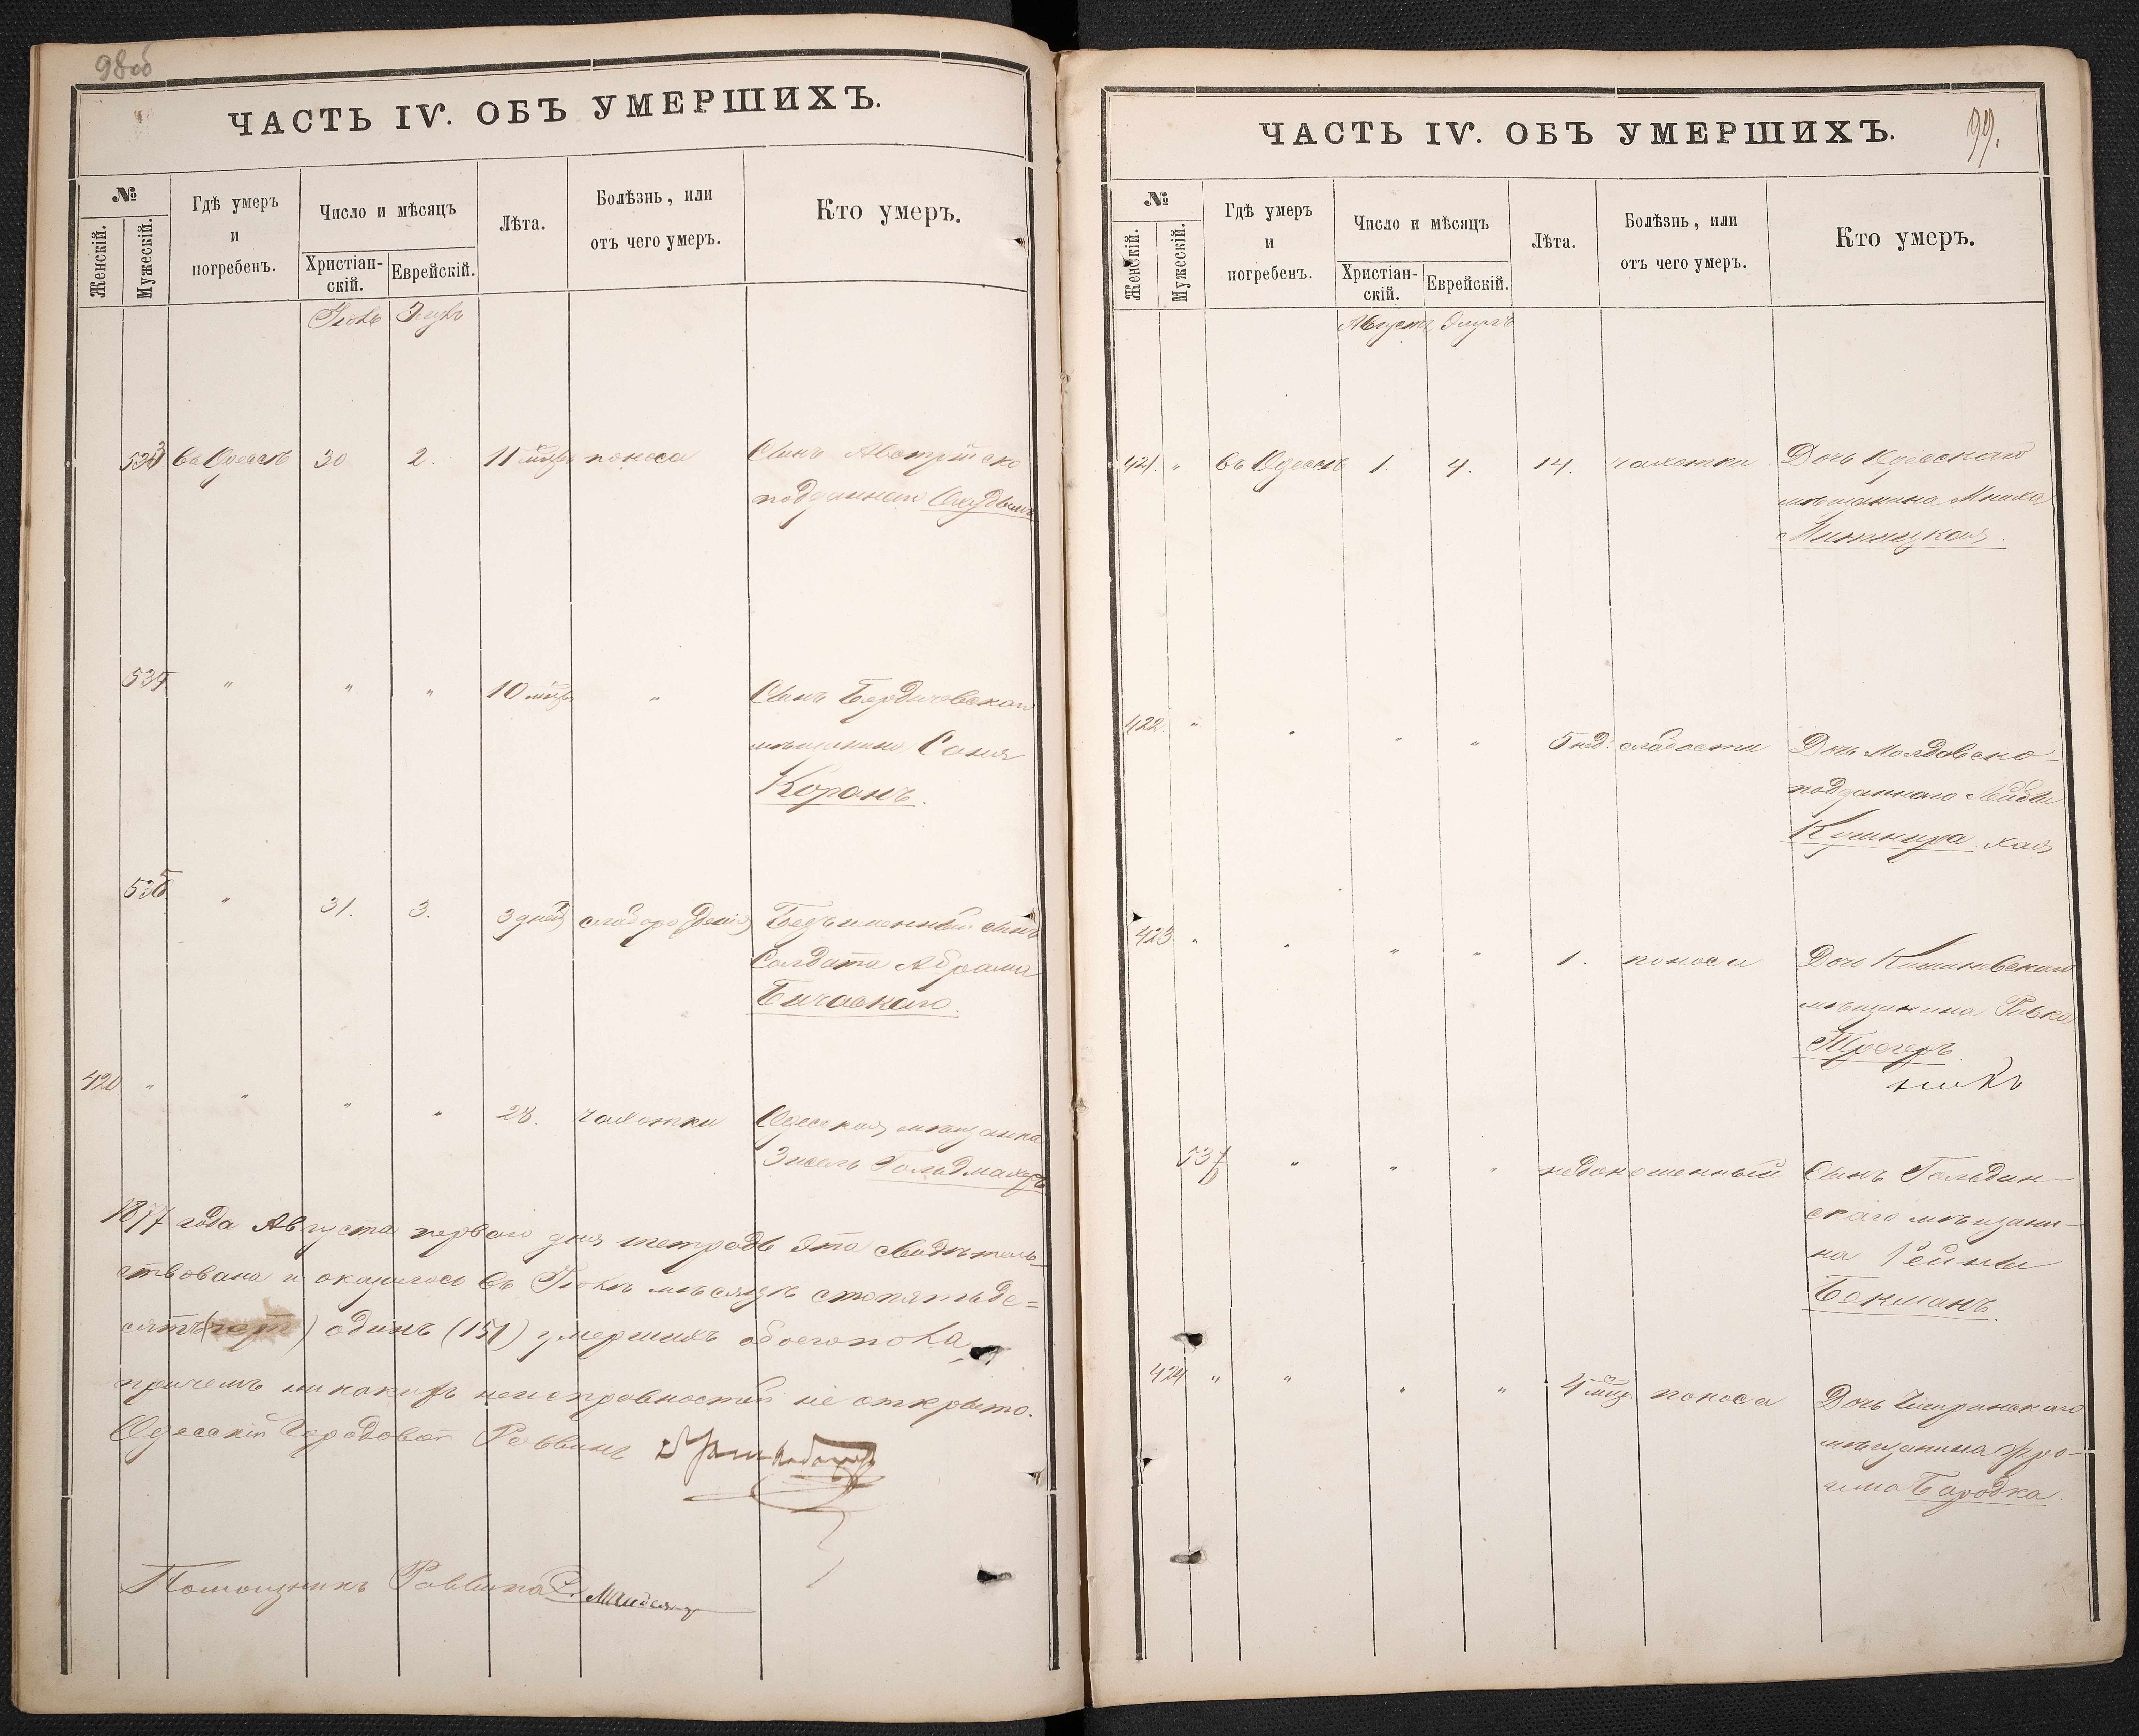 98об
ЧАСТЬ IV. ОБЪ УМЕРШИХЪ.
№
Женскій.
Мужескій.
Гдѣ умеръ
и
погребенъ.
Число и мѣсяцъ
Христіан-
скій.
Еврейскій.
Лѣта.
Болѣзнь, или
отъ чего умеръ.
Кто умеръ.
Іюль Элулъ
въ Одессѣ 30 2. 11 мѣс поноса Сынъ Австрійско
подданнаго
535 " " " 10 мѣс " Сынъ Бердичевскаго
мѣщанина Саня
Коранъ.
536 " 31. 3. 3 дней слаборожденія Безъименный сынъ
Солдата Абрама
Бичевскаго.
420. " " " " 28. чахотки Одесская мѣщанка
Зисель Гольдмахеръ
1877 года Августа перваго дня тетрадь эта свидѣтель-
ствована и оказалось въ Іюлѣ мѣсяцѣ стопятьде=
сятъ ( ) одинъ (151) умершихъ обоего пола,
причемъ никакихъ неисправностей не открыто.
Одесскій Городовой Раввинъ
Помощникъ Раввина
ЧАСТЬ IV. ОБЪ УМЕРШИХЪ.
99.
№
Женскій.
Мужескій.
Гдѣ умеръ
и
погребенъ.
Число и мѣсяцъ
Христіан-
скій.
Еврейскій.
Лѣта.
Болѣзнь, или
отъ чего умеръ.
Кто умеръ.
Августъ Элулъ
421. " въ Одессѣ 1. 4. 14. чахотки Дочь Одесскаго
мѣщанина
422. " " " " 5 нед. слабости Дочь Молдавско-
подданнаго Лейбы
Кушнира Хая
423 " " " " 1. поноса Дочь Кишиневскаго
мѣщанина Ривка
Трегеръ
537 " " " недоношенный Сынъ Гольдин-
скаго мѣщани-
на
Бекманъ.
424 " " " " 4 мѣс поноса Дочь Чигиринскаго
мѣщанина Фро-
има Бародка.